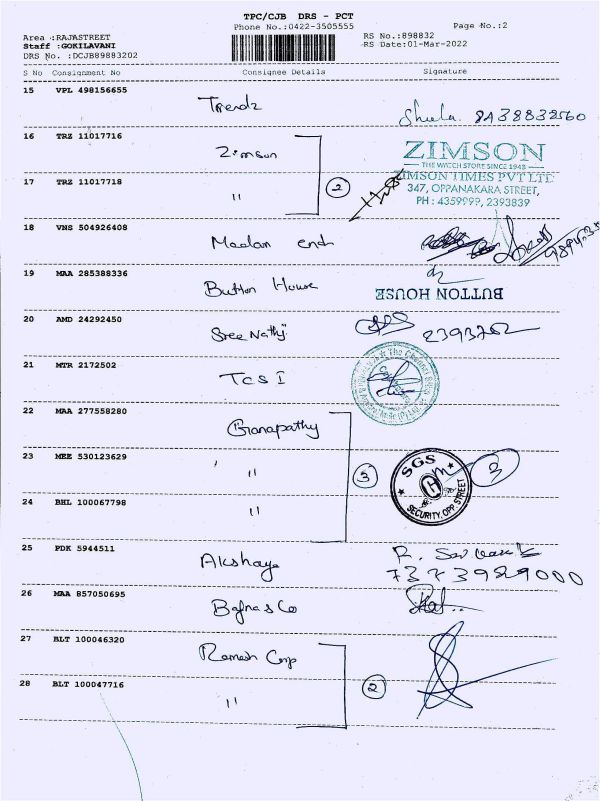 TPC/CJB DRS - PCT
Phone No.:0422-3505555
Page No.:2
Area :RAJASTREET
RS No.:898832
Staff :GOKILAVANI
RS Date:01-Mar-2022
DRS No. :DCJB89883202
S No Consignment No Consignee Details Signature
15 VPL 498156655
Trendz
Sheela 8A38832560
16 TRZ 11017716
Zimson
ZIMSON
THE WATCH STORE SINCE 1948
ZIMSON TIMES PVT LTD
17 TRZ 11017718
"
2
347, OPPANAKARA STREET,
PH : 4359999, 2393839
18 VNS 504926408
19 MAA 285388336
Button House
BUTTON HOUSE
20 AMD 24292450
Sree Nathji
2393752
21 MTR 2172502
TCS I
22 MAA 277558280
Ganapathy
23 MEE 530123629
"
3
SGS
SECURITY, OPP. STREET
3
24 BHL 100067798
"
25 PDK 5944511
Akshaya
R.
7373929000
26 MAA 857050695
Bafna & Co
27 BLT 100046320
Ramesh Corp
28 BLT 100047716
"
2